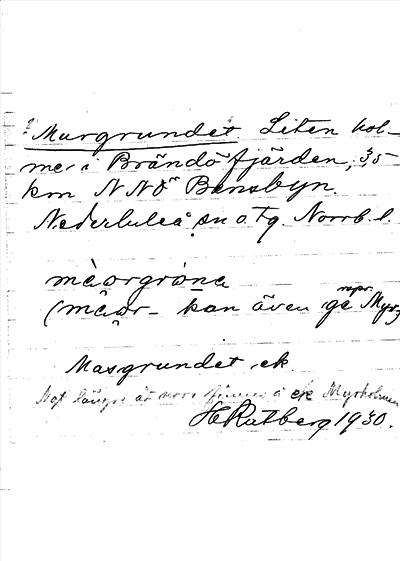 Murgrundet. Liten hol-
me i Brändöfjärden, 3,5
km NNÖ Bensbyn.
Nederluleå sn o. Tg. Norrb. l.
màorgróna
repr.
(mâor- kan även ge Myr-)
Masgrundet ek.
Not längre åt norr finnes å ek Myrholmen
H Ratberg 1930.